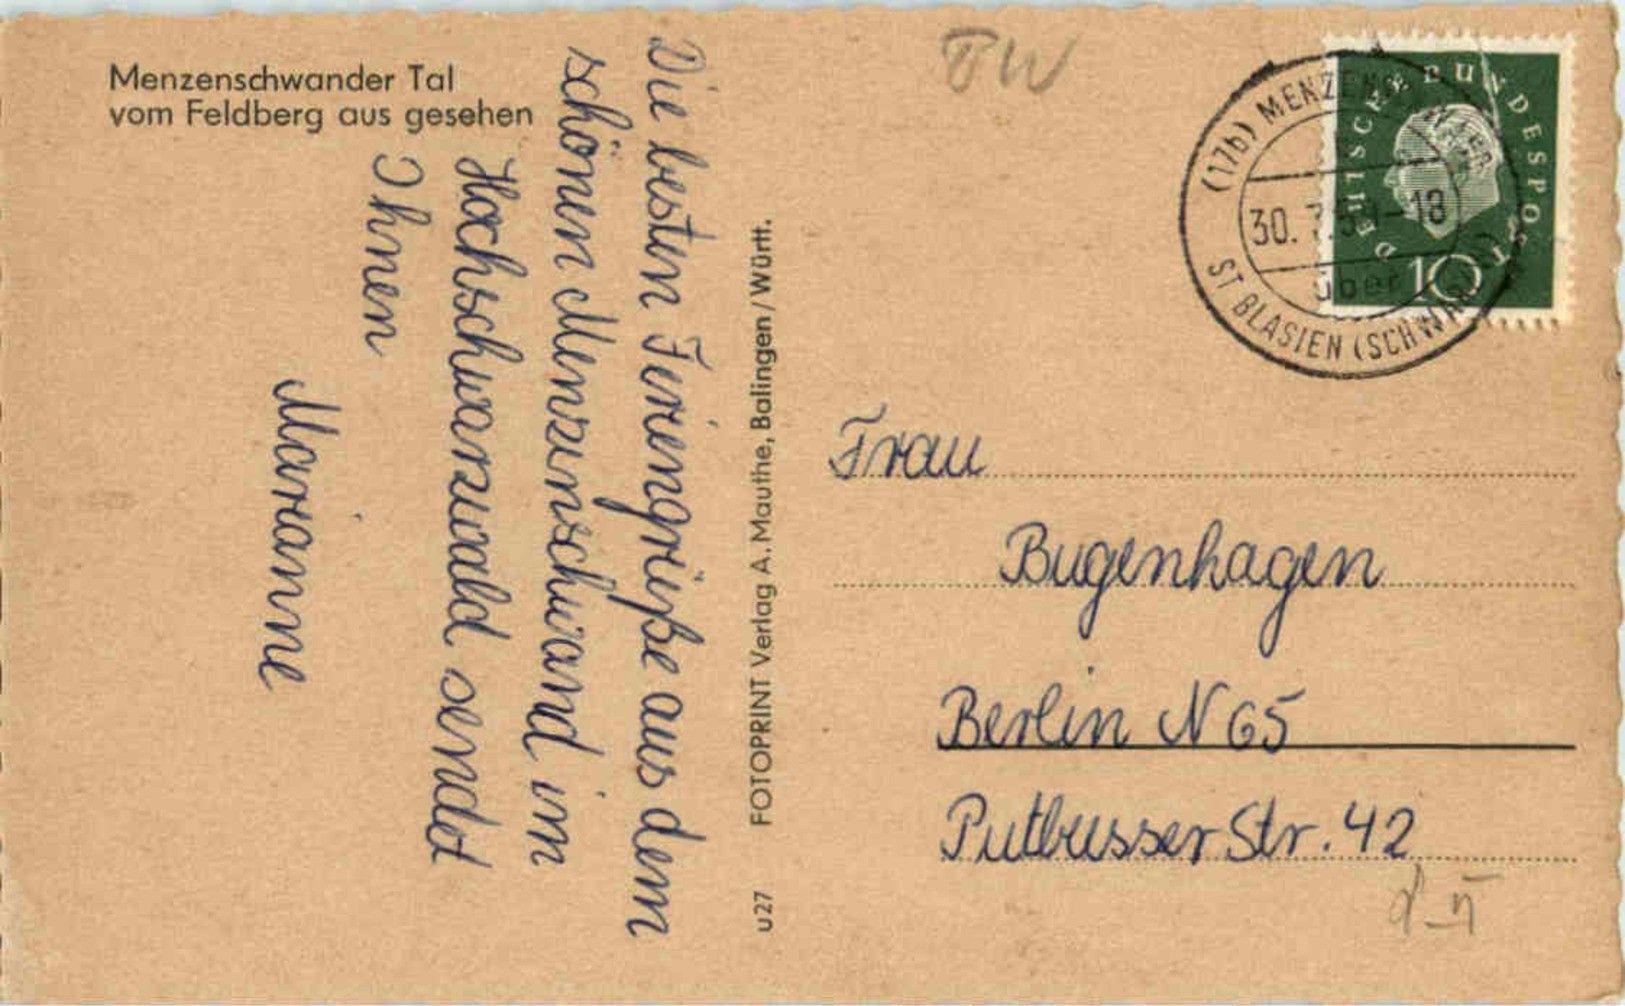 Menzenschwander Tal
vom Feldberg aus gesehen
Die besten Feriengrüße aus dem
schönen Menzenschwand im
Hochschwarzwald sendet
Ihnen
Marianne
u27 FOTOPRINT Verlag A. Mauthe, Balingen/Württ.
BW
DEUTSCHE BUNDESPOST
10
(17b) MENZEN
30. -18
über
ST BLASIEN (SCHW
Frau
Bugenhagen
Berlin N 65
Putbusser Str. 42